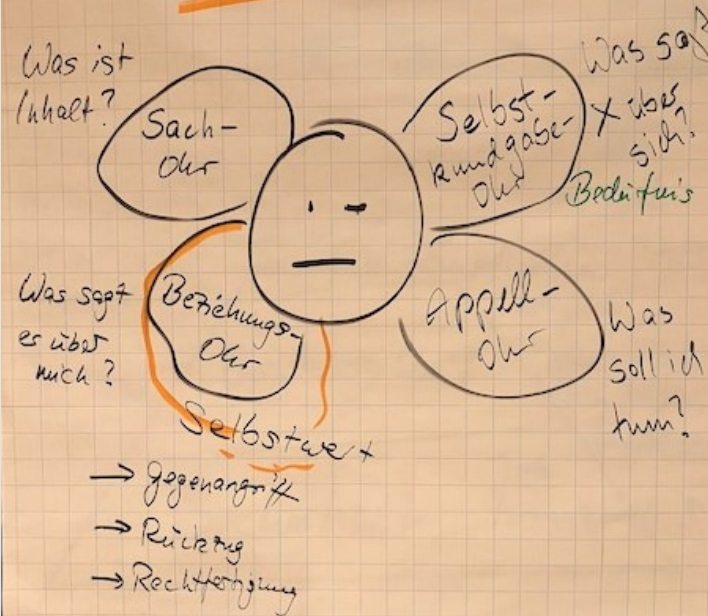 Was ist
Inhalt?
Sach-
Ohr
Selbst-
kundgabe-
Ohr
Was sagt
X über
sich?
Bedürfnis
Was sagt
er über
mich?
Beziehungs-
Ohr
Appell-
Ohr
Was
soll ich
tun?
Selbstwert
→ Gegenangriff
→ Rückzug
→ Rechtfertigung